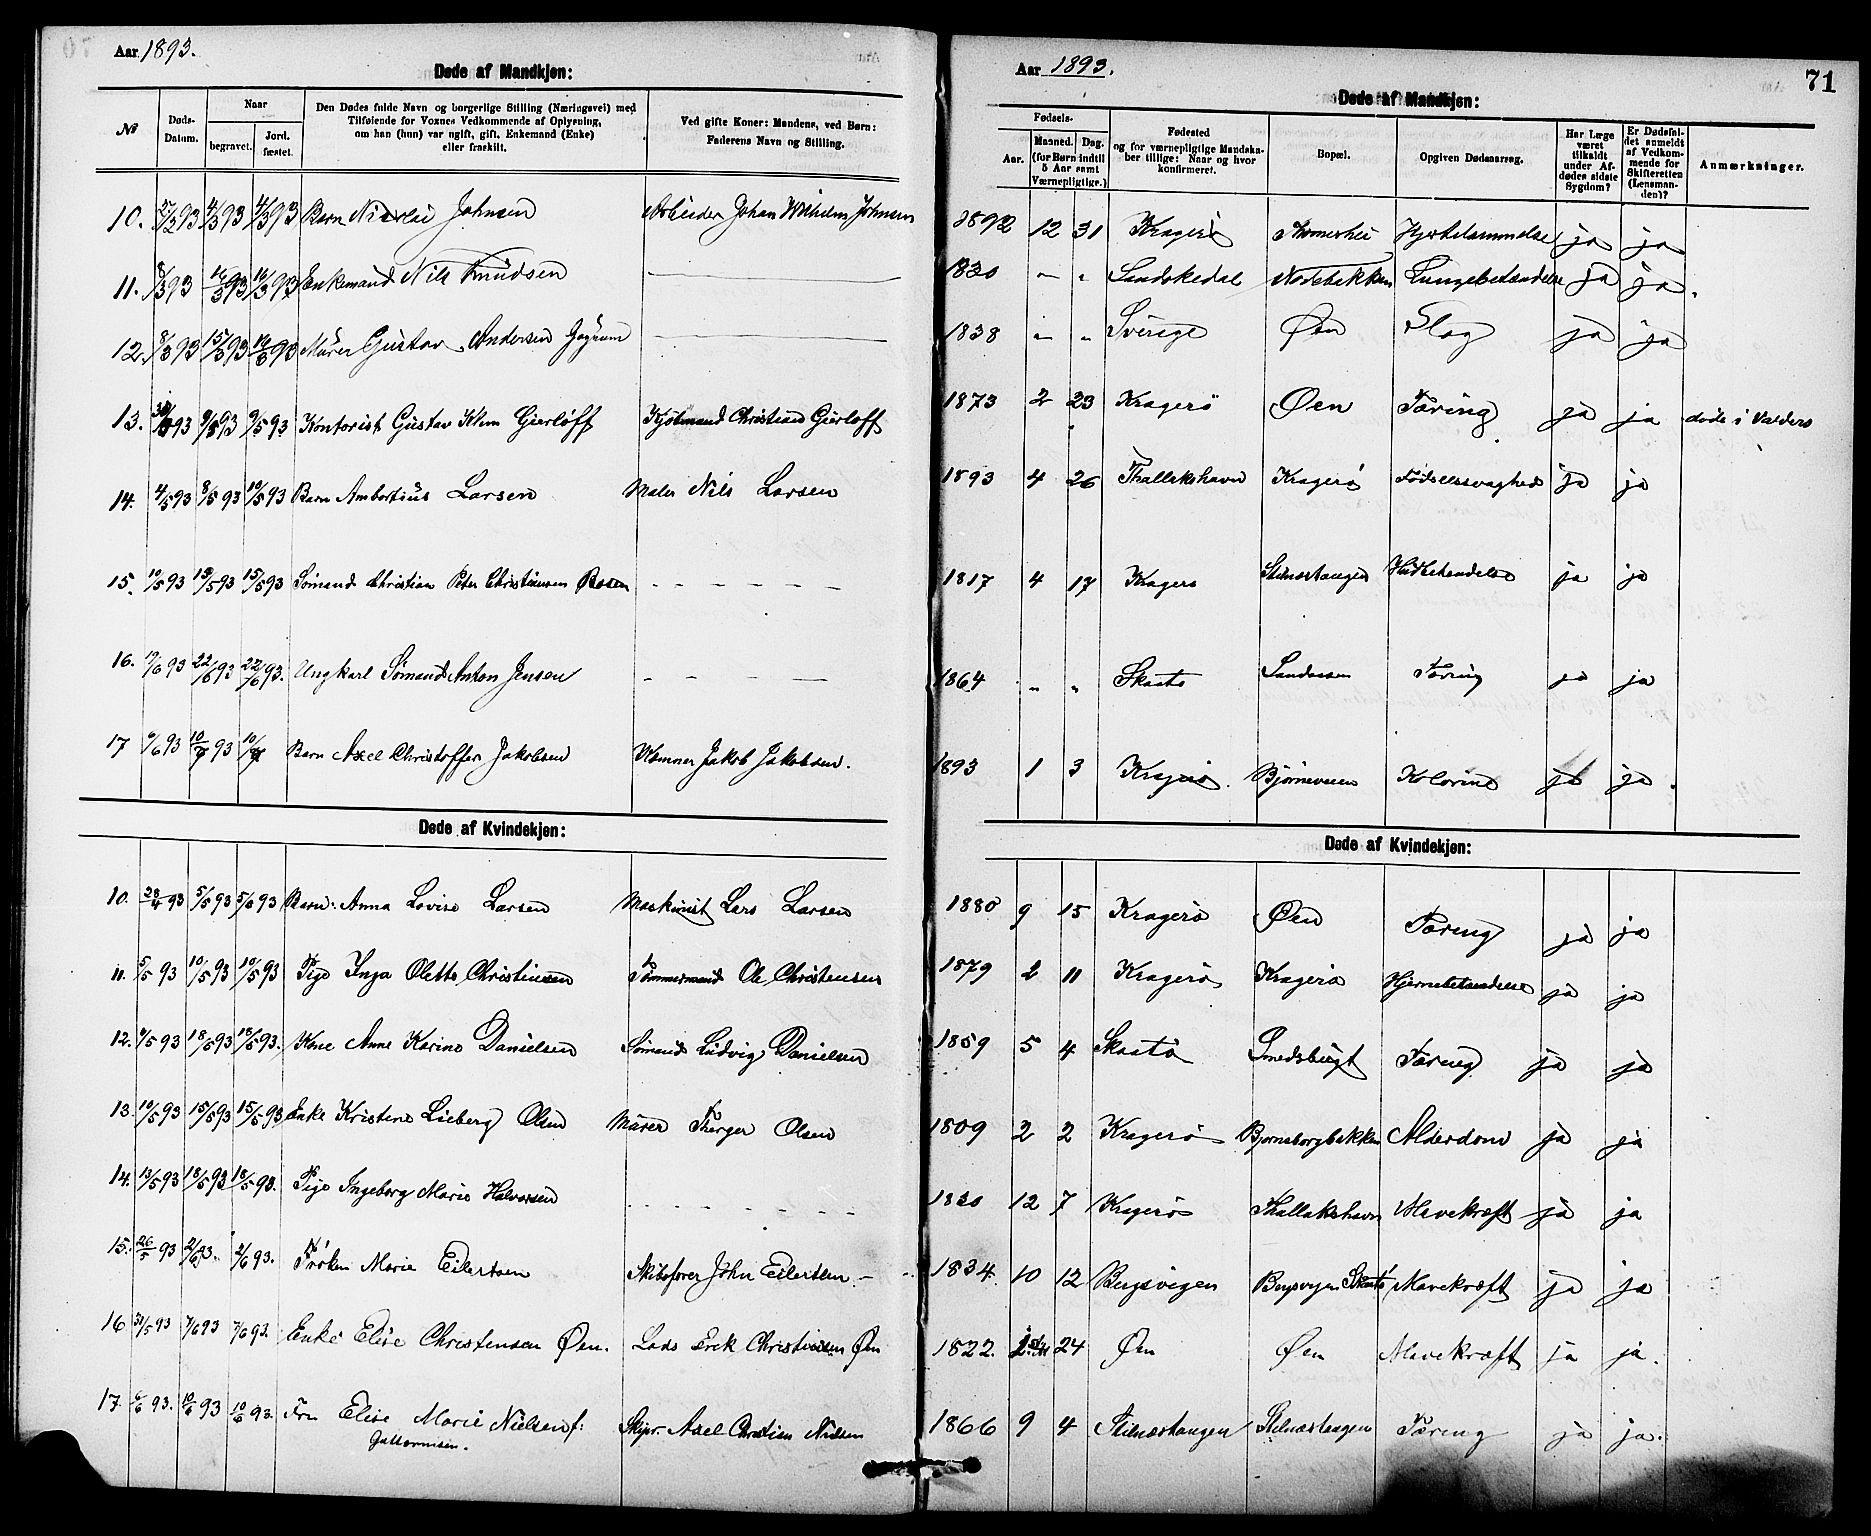 Aar 1893.
Døde af Mandkjøn:
№
Døds-Datum.
Naar
begravet.
Jord.fæstet.
Den Dødes fulde Navn og borgerlige Stilling (Næringsvei) med
Tilføiende for Voxnes Vedkommende af Oplysning,
om han (hun) var ugift, gift, Enkemand (Enke)
eller fraskilt.
Ved gifte Koner: Mandens, ved Børn:
Faderens Navn og Stilling.
10. 27/2 93 4/3 93 4/3 93 Barn Nicolai Johnsen Arbeider Johan Wilhelm Johnsen
11. 8/3 93 14/3 93 14/3 93 Enkemand Nils Knudsen
12. 8/3 93 15/3 93 Murer Gustav Andersen
13. 9/5 93 9/5 93 Kontorist Gustav Klem Gierløff Kjøbmand Christian Gierløff
14. 4/5 93 8/5 93 10/5 93 Barn Ambortius Larsen Maler Nils Larsen
15. 10/5 93 15/5 93 15/5 93 Sømand Christian Peter Christiansen Bosen
16. 22/6 93 22/6 93. Ungkarl Sømand Anton Jensen
17 6/6 93 10/7 93 10/7 Barn Axel Christoffer Jakobsen Jakob Jakobsen.
Døde af Kvindekjøn:
10. 28/4 93 5/5 93 5/6 93 Barn: Anna Lovise Larsen Maskinist Lars Larsen
11. 5/5 93 10/5 93 10/5 93 Pige Inga Olette Christensen Tømmermand Ole Christensen
12. 9/5 93 18/5 93 18/5 93. Kone Anne Karine Danielsen Sømand Ludvig Danielsen
13. 10/5 93 15/5 93 15/5 93 Enke Kristene Lieberg Olsen Murer Therger Olsen
14. 13/5 93 18/5 93 18/5 93. Pige Ingeborg Marie Halvorsen
15. 26/5 93 2/6 93. 2/6 93. Frøken Marie Eilertsen Skibsfører John Eilertsen
16 31/5 93 7/6 93 7/6 93. Enke Elise Christensen Øen. Lods Erik Christensen Øen
17. 6/6 93. 10/6 93 10/6 93. Fru Elise Marie Nielsen f:
Guttormsen.
Skipr. Axel Christian Nielsen
Aar 1893.
71
Døde af Mandkjøn:
Fødsels-
Aar.
Maaned. Dag.
(for Børn indtil
5 Aar samt
Værnepligtige.)
Fødested
og for værnepligtige Mandska-
ber tillige: Naar og hvor
konfirmeret.
Bopæl.
Opgiven Dødsaarsag.
Har Læge
været
tilkaldt
under Af-
dødes sidste
Sygdom?
Er Dødsfal-
det anmeldt
af Vedkom-
mende for
Skifteretten
(Lensman-
den)?
Anmærkninger.
1892 12 31 Kragerø Hjertelammelse ja ja
1830 " " Sandøkedal Lungebetændelse ja ja.
1838 " " Sverige Øen Slag ja ja
1873 2 23 Kragerø Øen Tæring ja ja døde i Valders
1893 4 26 Thallakshavn Kragerø Fødselssvaghed ja ja
1817 4 17 Kragerø Stilnæstangen ja ja
1864 " " Skaatø Sandaasen Tæring ja ja
1893 1 3 Kragerø. Bjørneveien Kolerine ja ja.
Døde af Kvindekjøn:
1880 9 15 Kragerø Øen Tæring ja ja
1879 2 11 Kragerø Kragerø Hjernebetændelse ja ja
1859 5 4 Skaatø Smedsbugt Tæring ja ja
1809 2 2 Kragerø Bjørnsborgbakken Alderdom ja ja
1830 12 7 Kragerø Thallakshavn Mavekræft ja ja
1834. 10 12 Bergsvigen Bergsvigen Skaatø Mavekræft ja ja
1822. 24 Øen Øen Mavekræft ja ja.
1866 9 4 Stilnæstangen Stilnæstangen Tæring ja ja.